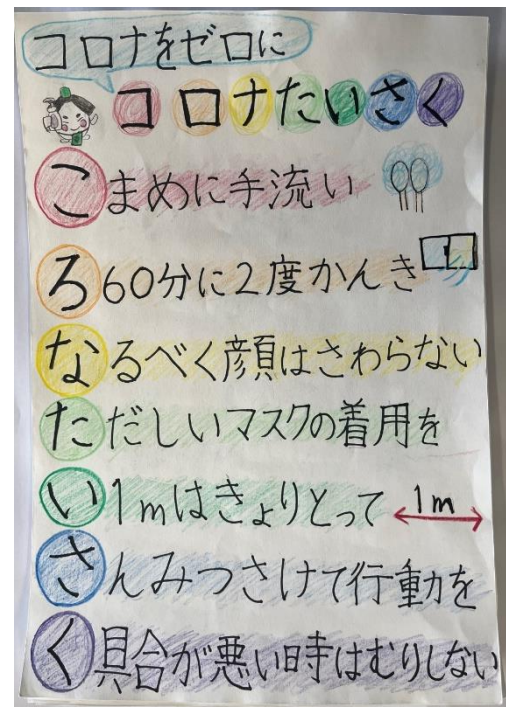 コロナをゼロに
コロナたいさく
こまめに手流い
ろ60分に2度かんき
なるべく顔はさわらない
ただしいマスクの着用を
い1mはきょりとって 1m
さんみつさけて行動を
く具合が悪い時はむりしない